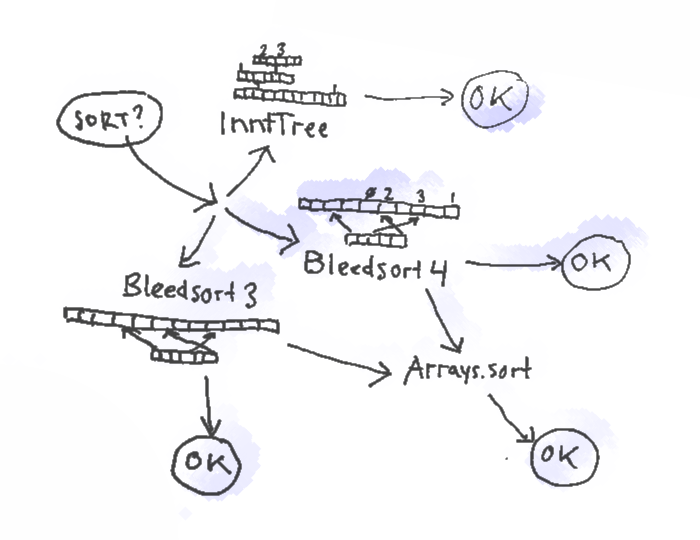 2 3
SORT?
InntTree
OK
ø 2 3 1
Bleedsort 4
OK
Bleedsort 3
Arrays.sort
OK
OK